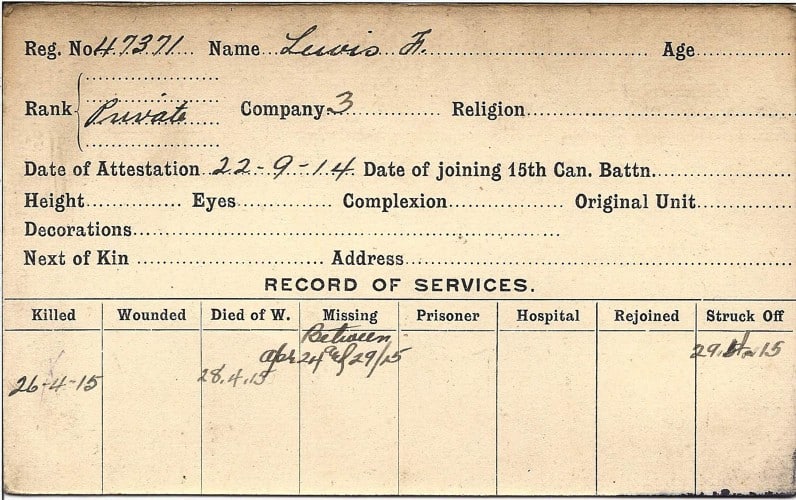 Reg. No 47371 Name Lewis F. Age
Rank Private Company 3 Religion
Date of Attestation 22-9-14 Date of joining 15th Can. Battn.
Height Eyes Complexion Original Unit
Decorations
Next of Kin Address
RECORD OF SERVICES.
Killed Wounded Died of W. Missing Prisoner Hospital Rejoined Struck Off
Between
Apr 24 29/15
29 15
26-4-15 28.4.15